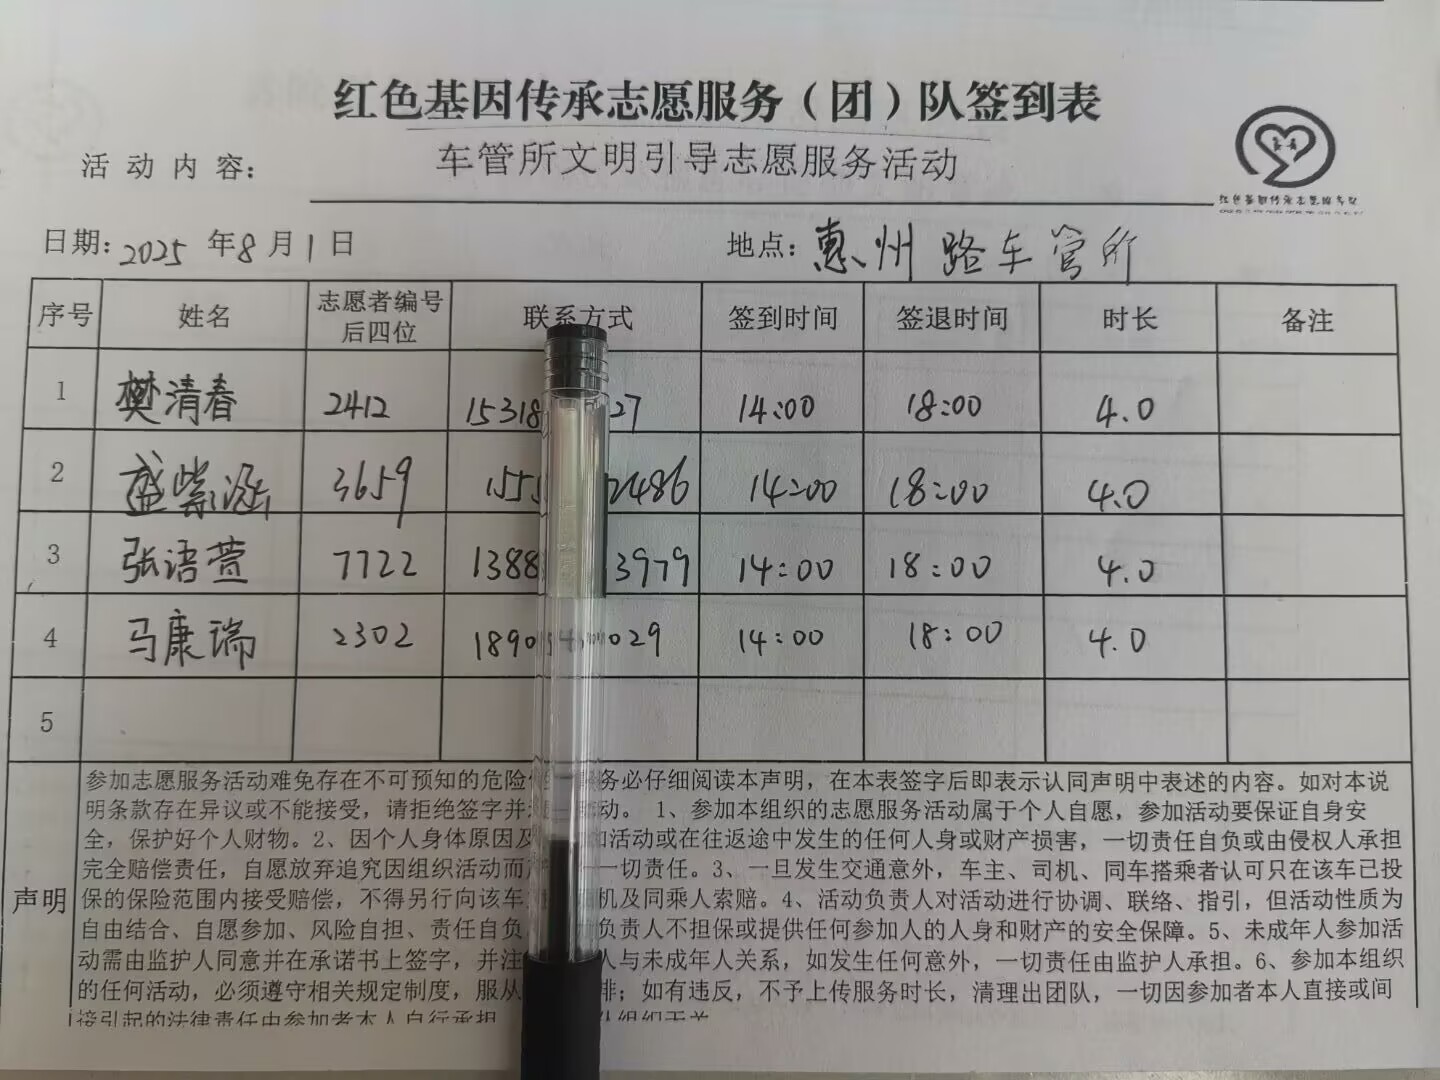 红色基因传承志愿服务（团）队签到表
活动内容：车管所文明引导志愿服务活动
红色基因传承志愿服务队
日期：2025年8月1日 地点：惠州路车管所
序号 姓名 志愿者编号后四位 联系方式 签到时间 签退时间 时长 备注
1 樊清春 2412 15318 27 14:00 18:00 4.0
2 盛紫涵 3659 155 2486 14:00 18:00 4.0
3 张语萱 7722 1388 3979 14:00 18:00 4.0
4 马康瑞 2302 1890 029 14:00 18:00 4.0
5
声明
参加志愿服务活动难免存在不可预知的危险 务必仔细阅读本声明，在本表签字后即表示认同声明中表述的内容。如对本说
明条款存在异议或不能接受，请拒绝签字并 动。 1、参加本组织的志愿服务活动属于个人自愿，参加活动要保证自身安
全，保护好个人财物。2、因个人身体原因及 加活动或在往返途中发生的任何人身或财产损害，一切责任自负或由侵权人承担
完全赔偿责任，自愿放弃追究因组织活动而 一切责任。3、一旦发生交通意外，车主、司机、同车搭乘者认可只在该车已投
保的保险范围内接受赔偿，不得另行向该车 机及同乘人索赔。4、活动负责人对活动进行协调、联络、指引，但活动性质为
自由结合、自愿参加、风险自担、责任自负 负责人不担保或提供任何参加人的人身和财产的安全保障。5、未成年人参加活
动需由监护人同意并在承诺书上签字，并注 人与未成年人关系，如发生任何意外，一切责任由监护人承担。6、参加本组织
的任何活动，必须遵守相关规定制度，服从 排；如有违反，不予上传服务时长，清理出团队，一切因参加者本人直接或间
接引起的法律责任由参加者本人自行承担 队组织无关